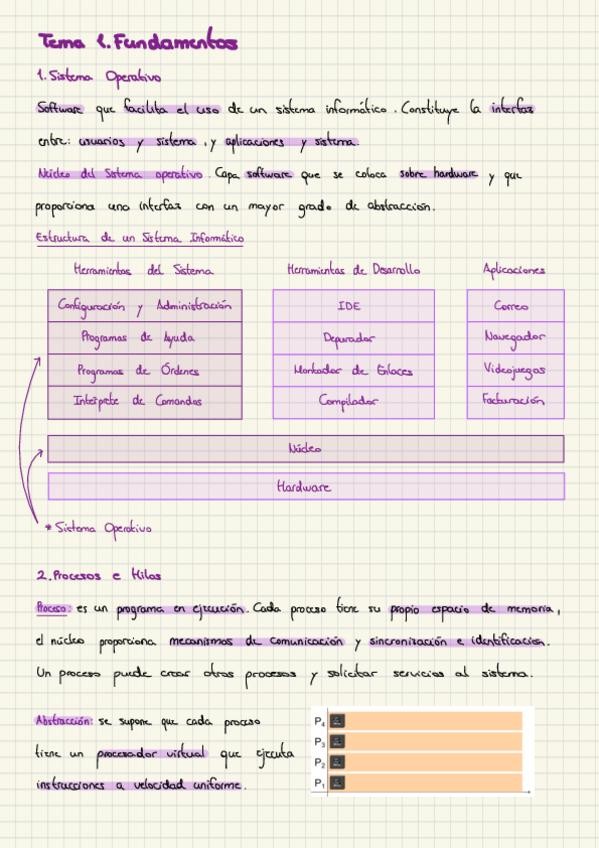 Tema 1. Fundamentos
1. Sistema Operativo
Software que facilita el uso de un sistema informático. Constituye la interfaz
entre: usuarios y sistema, y aplicaciones y sistema.
Núcleo del Sistema operativo. Capa software que se coloca sobre hardware y que
proporciona una interfaz con un mayor grado de abstracción.
Estructura de un Sistema Informático
Herramientas del Sistema
Herramientas de Desarrollo
Aplicaciones
Configuración y Administración
IDE
Correo
Programas de Ayuda
Depurador
Navegador
Programas de Órdenes
Montador de Enlaces
Videojuegos
Intérprete de Comandos
Compilador
Facturación
Núcleo
Hardware
* Sistema Operativo
2. Procesos e Hilos
Proceso: es un programa en ejecución. Cada proceso tiene su propio espacio de memoria,
el núcleo proporciona mecanismos de comunicación y sincronización e identificación.
Un proceso puede crear otros procesos y solicitar servicios al sistema.
Abstracción: se supone que cada proceso
tiene un procesador virtual que ejecuta
instrucciones a velocidad uniforme.
P4
P3
P2
P1